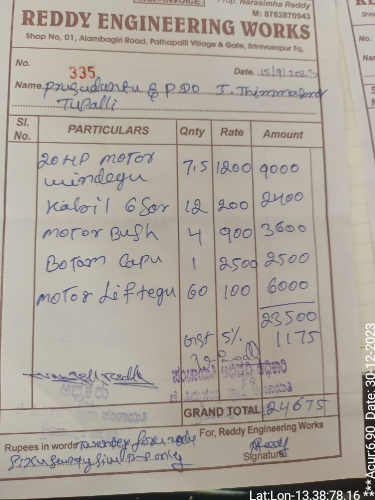 Prop: Narasimha Reddy
M: 9762870943
REDDY ENGINEERING WORKS
Shop No, 01, Alambagiri Road, Pathapalli Village & Gate, Srinivasapur Tq,
No. 335 Date. 15/9/2023
Name. & PDO J. Thimmasandra
Sl. No. PARTICULARS Qnty Rate Amount
20 HP Motor 7.5 1200 9000
windegu
Kaboil 12 200 2400
Motor Bush 4 900 3600
Botam Capu 1 2500 2500
Motor Liftegu 60 100 6000
23500
GST 5% 1175
GRAND TOTAL 24675
For, Reddy Engineering Works
Rupees in words
only
Signature
Lat:Lon-13.38:78.16
***Acur:6.90 Date: 30-12-2023